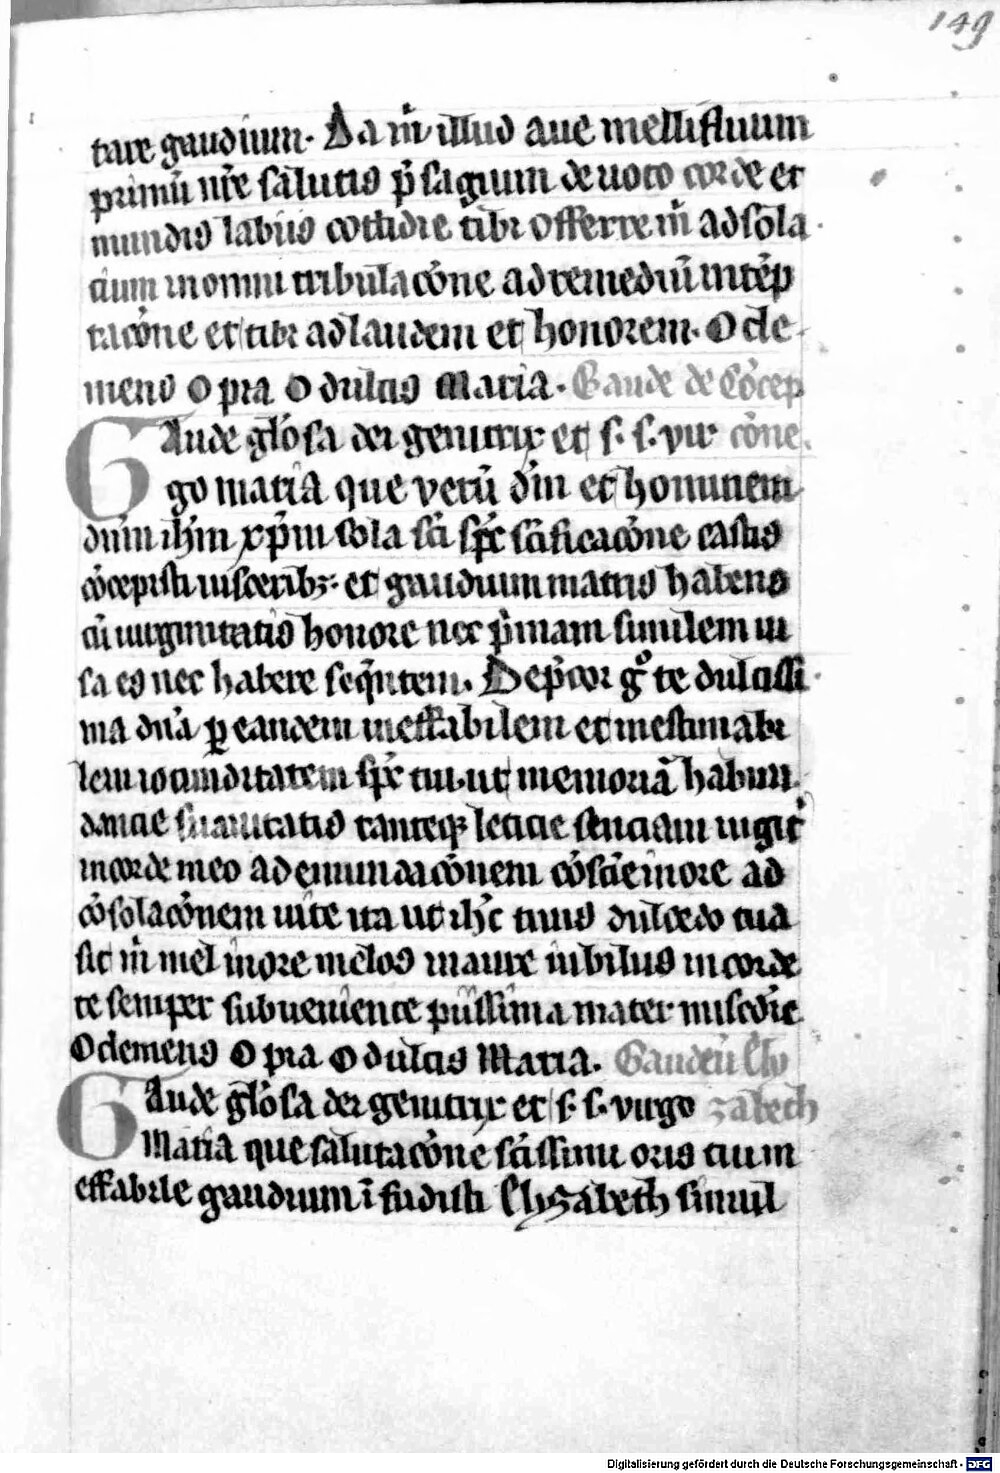 149
tare gaudium. Da m̄ illud aue mellifluum
primū nr̄e salutis p̄sagium deuoto corde et
mundis labiis cottidie tibi offerre m̄ ad sola
cium in omni tribulacōne ad remediū in tēp
tacōne et tibi ad laudem et honorem. O cle
mens O pia O dulcis Maria. Gaude de Cōcep
GAude glōsa dei genitrix et s. s. vir cōne
go maria que verū dm̄ et hominem
dn̄m ihm̄ xp̄m sola sc̄i sp̄c sc̄ificacōne castis
cōcepisti uisceribꝫ et gaudium matris habens
cū uirginitatis honore nec p̄mam similem ui
sa es nec habere seqn̄tem. Dep̄cor gͦ te dulcissi
ma dn̄a ꝑ eandem ineffabilem et inestimabi
lem iocunditatem sp̄c tui. ut memoriā habun
dancie suauitatis tanteqꝫ leticie senciam iugit̾
in corde meo ad emundacōnem cōsc̄ie in ore ad
cōsolacōnem uite ita ut ih̄c tuus dulcedo tua
sit m̄ mel in ore melos in aure iubilus in corde
te semper subueniente piissima mater mis̄cdie
O clemens O pia O dulcis Maria. Gaudeū Ely
GAude glōsa dei genitrix et s. s. virgo zabeth
Maria que salutacōne sc̄issimi oris tui in
effabile gaudium ī fudisti Elyzabeth simul
Digitalisierung gefördert durch die Deutsche Forschungsgemeinschaft - DFG